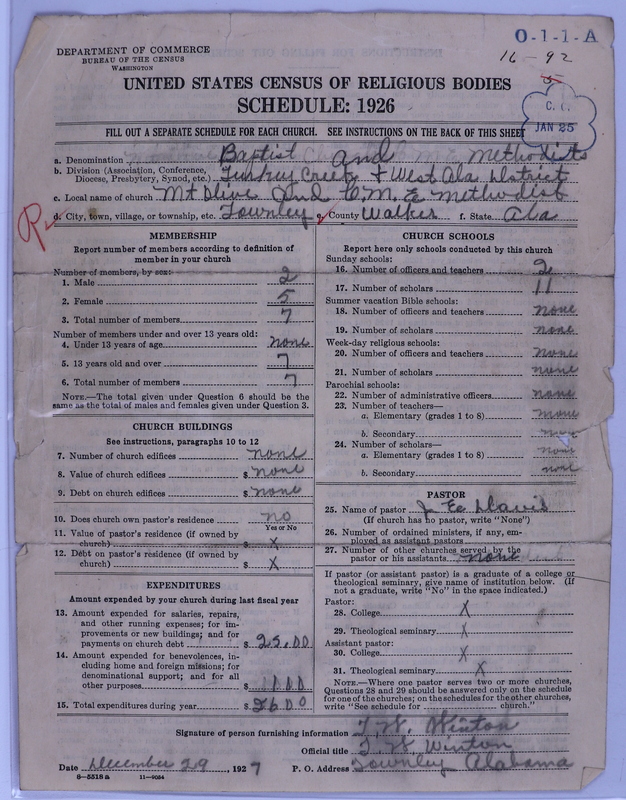 O-1-1-A
16-92
DEPARTMENT OF COMMERCE
BUREAU OF THE CENSUS
WASHINGTON
UNITED STATES CENSUS OF RELIGIOUS BODIES
SCHEDULE: 1926
C. C.
JAN 25
FILL OUT A SEPARATE SCHEDULE FOR EACH CHURCH. SEE INSTRUCTIONS ON THE BACK OF THIS SHEET
a. Denomination Baptist and Methodists
b. Division (Association, Conference, Diocese, Presbytery, Synod, etc.) Turkey Creek + West Ala District
c. Local name of church Mt Olive and C. M. E Methodist
R
d. City, town, village, or township, etc. Townley e. County Walker f. State Ala
MEMBERSHIP
Report number of members according to definition of
member in your church
Number of members, by sex:
1. Male 2
2. Female 5
3. Total number of members 7
Number of members under and over 13 years old:
4. Under 13 years of age none
5. 13 years old and over 7
6. Total number of members 7
NOTE.—The total given under Question 6 should be the
same as the total of males and females given under Question 3.
CHURCH BUILDINGS
See instructions, paragraphs 10 to 12
7. Number of church edifices none
8. Value of church edifices $ none
9. Debt on church edifices $ none
10. Does church own pastor's residence no
Yes or No
11. Value of pastor's residence (if owned by
church) $ X
12. Debt on pastor's residence (if owned by
church) $ X
EXPENDITURES
Amount expended by your church during last fiscal year
13. Amount expended for salaries, repairs,
and other running expenses; for im-
provements or new buildings; and for
payments on church debt $ 25.00
14. Amount expended for benevolences, in-
cluding home and foreign missions; for
denominational support; and for all
other purposes $ 1.00
15. Total expenditures during year $ 26.00
CHURCH SCHOOLS
Report here only schools conducted by this church
Sunday schools:
16. Number of officers and teachers 2
17. Number of scholars 11
Summer vacation Bible schools:
18. Number of officers and teachers none
19. Number of scholars none
Week-day religious schools:
20. Number of officers and teachers none
21. Number of scholars none
Parochial schools:
22. Number of administrative officers none
23. Number of teachers—
a. Elementary (grades 1 to 8) none
b. Secondary none
24. Number of scholars—
a. Elementary (grades 1 to 8) none
b. Secondary none
PASTOR
25. Name of pastor J. E. Davis
(If church has no pastor, write "None")
26. Number of ordained ministers, if any, em-
ployed as assistant pastors
27. Number of other churches served by the
pastor or his assistants none
If pastor (or assistant pastor) is a graduate of a college or
theological seminary, give name of institution below. (If
not a graduate, write "No" in the space indicated.)
Pastor:
28. College X
29. Theological seminary X
Assistant pastor:
30. College X
31. Theological seminary X
NOTE.—Where one pastor serves two or more churches,
Questions 28 and 29 should be answered only on the schedule
for one of the churches; on the schedules for the other churches,
write "See schedule for church."
Signature of person furnishing information T. W. Winton
Official title T. W. Winton
Date December 29, 1927 P. O. Address Townley Alabama
8-5518a 11-9054